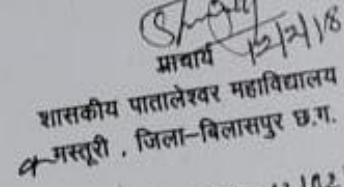 12/2/18
प्राचार्य
शासकीय पातालेश्वर महाविद्यालय
मस्तूरी , जिला-बिलासपुर छ.ग.